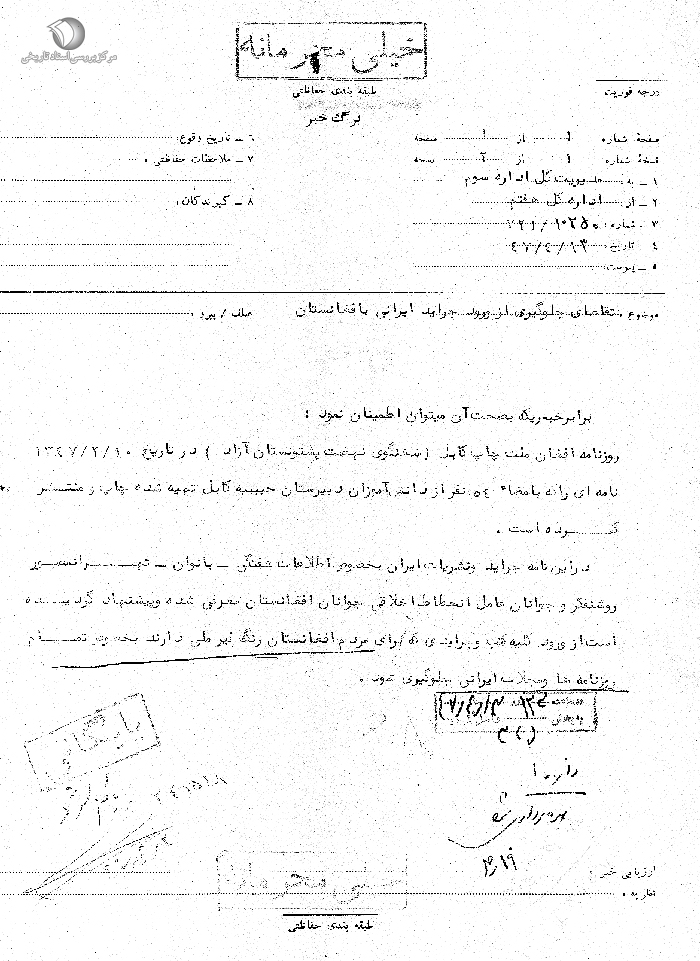 مرکز بررسی اسناد تاریخی
خیلی محرمانه
طبقه بندی حفاظتی
برگ خبر
درجه فوریت
صفحهٔ شماره ۱ از ۱ صفحه
نسخهٔ شماره ۱ از ۲ نسخه
۱ ـ به: مدیریت کل اداره سوم
۲ ـ از: اداره کل هفتم
۳ ـ شماره:
۴ تاریخ: ۴۷/۴/۱۳
۵ ـ پیوست:
۶ ـ تاریخ وقوع:
۷ ـ ملاحظات حفاظتی:
۸ ـ گیرندگان:
موضوع: تقاضای جلوگیری از ورود جراید ایرانی بافغانستان
برابر خبریکه بصحت آن میتوان اطمینان نمود :
روزنامه افغان ملت چاپ کابل (سخنگوی نهضت پشتونستان آزاد ) در تاریخ ۱۳۴۷/۲/۱۰
نامه ای راکه بامضاء ۵۴ نفر از دانش آموزان دبیرستان حبیبیه کابل تهیه شده چاپ و منتشر
کرده است .
در این نامه جراید ونشریات ایران بخصوص اطلاعات هفتگی ـ بانوان ـ تهرانمصور
روشنفکر و جوانان عامل انحطاط اخلاقی جوانان افغانستان معرفی شده وپیشنهاد گردیده
است از ورود کلیه کتب وجرایدی که برای مردم افغانستان رنگ غیر ملی دارند بخصوص تمام
روزنامه ها ومجلات ایرانی جلوگیری شود .
بایگانی
۲۴۱۵۱۸
بهره برداری شد
۴/۱۹
ارزیابی خبر :
نظریه :
خیلی محرمانه
طبقه بندی حفاظتی